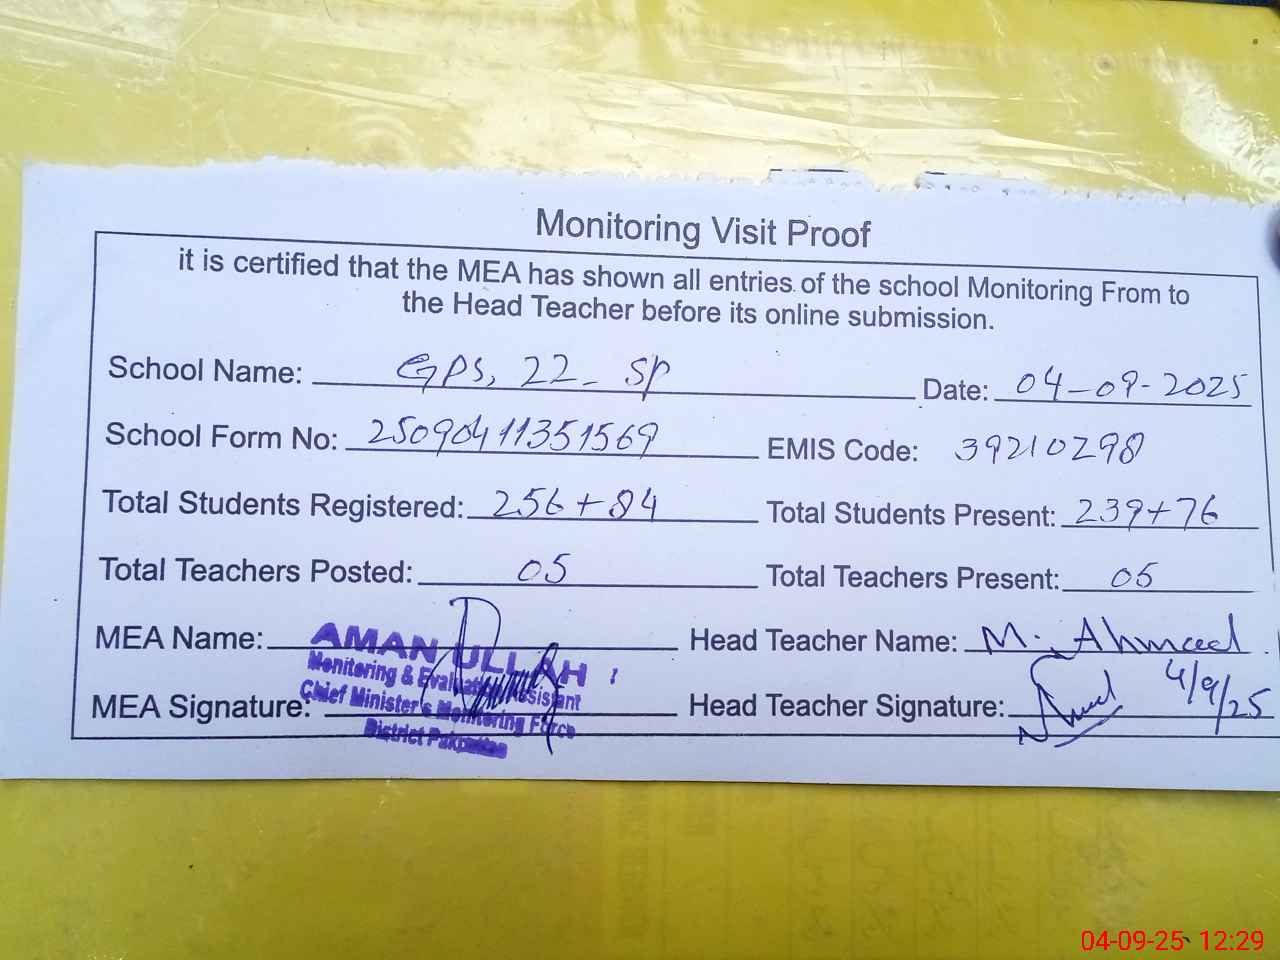 Monitoring Visit Proof
it is certified that the MEA has shown all entries of the school Monitoring From to
the Head Teacher before its online submission.
School Name: GPS, 22- SP Date: 04-09-2025
School Form No: 25090411351569 EMIS Code: 39210298
Total Students Registered: 256+84 Total Students Present: 239+76
Total Teachers Posted: 05 Total Teachers Present: 05
MEA Name: AMAN ULLAH Head Teacher Name: M. Ahmed
Monitoring & Evaluation Assistant
Chief Minister's Monitoring Force
District Pakpattan
MEA Signature: Head Teacher Signature: 4/9/25
04-09-25 12:29